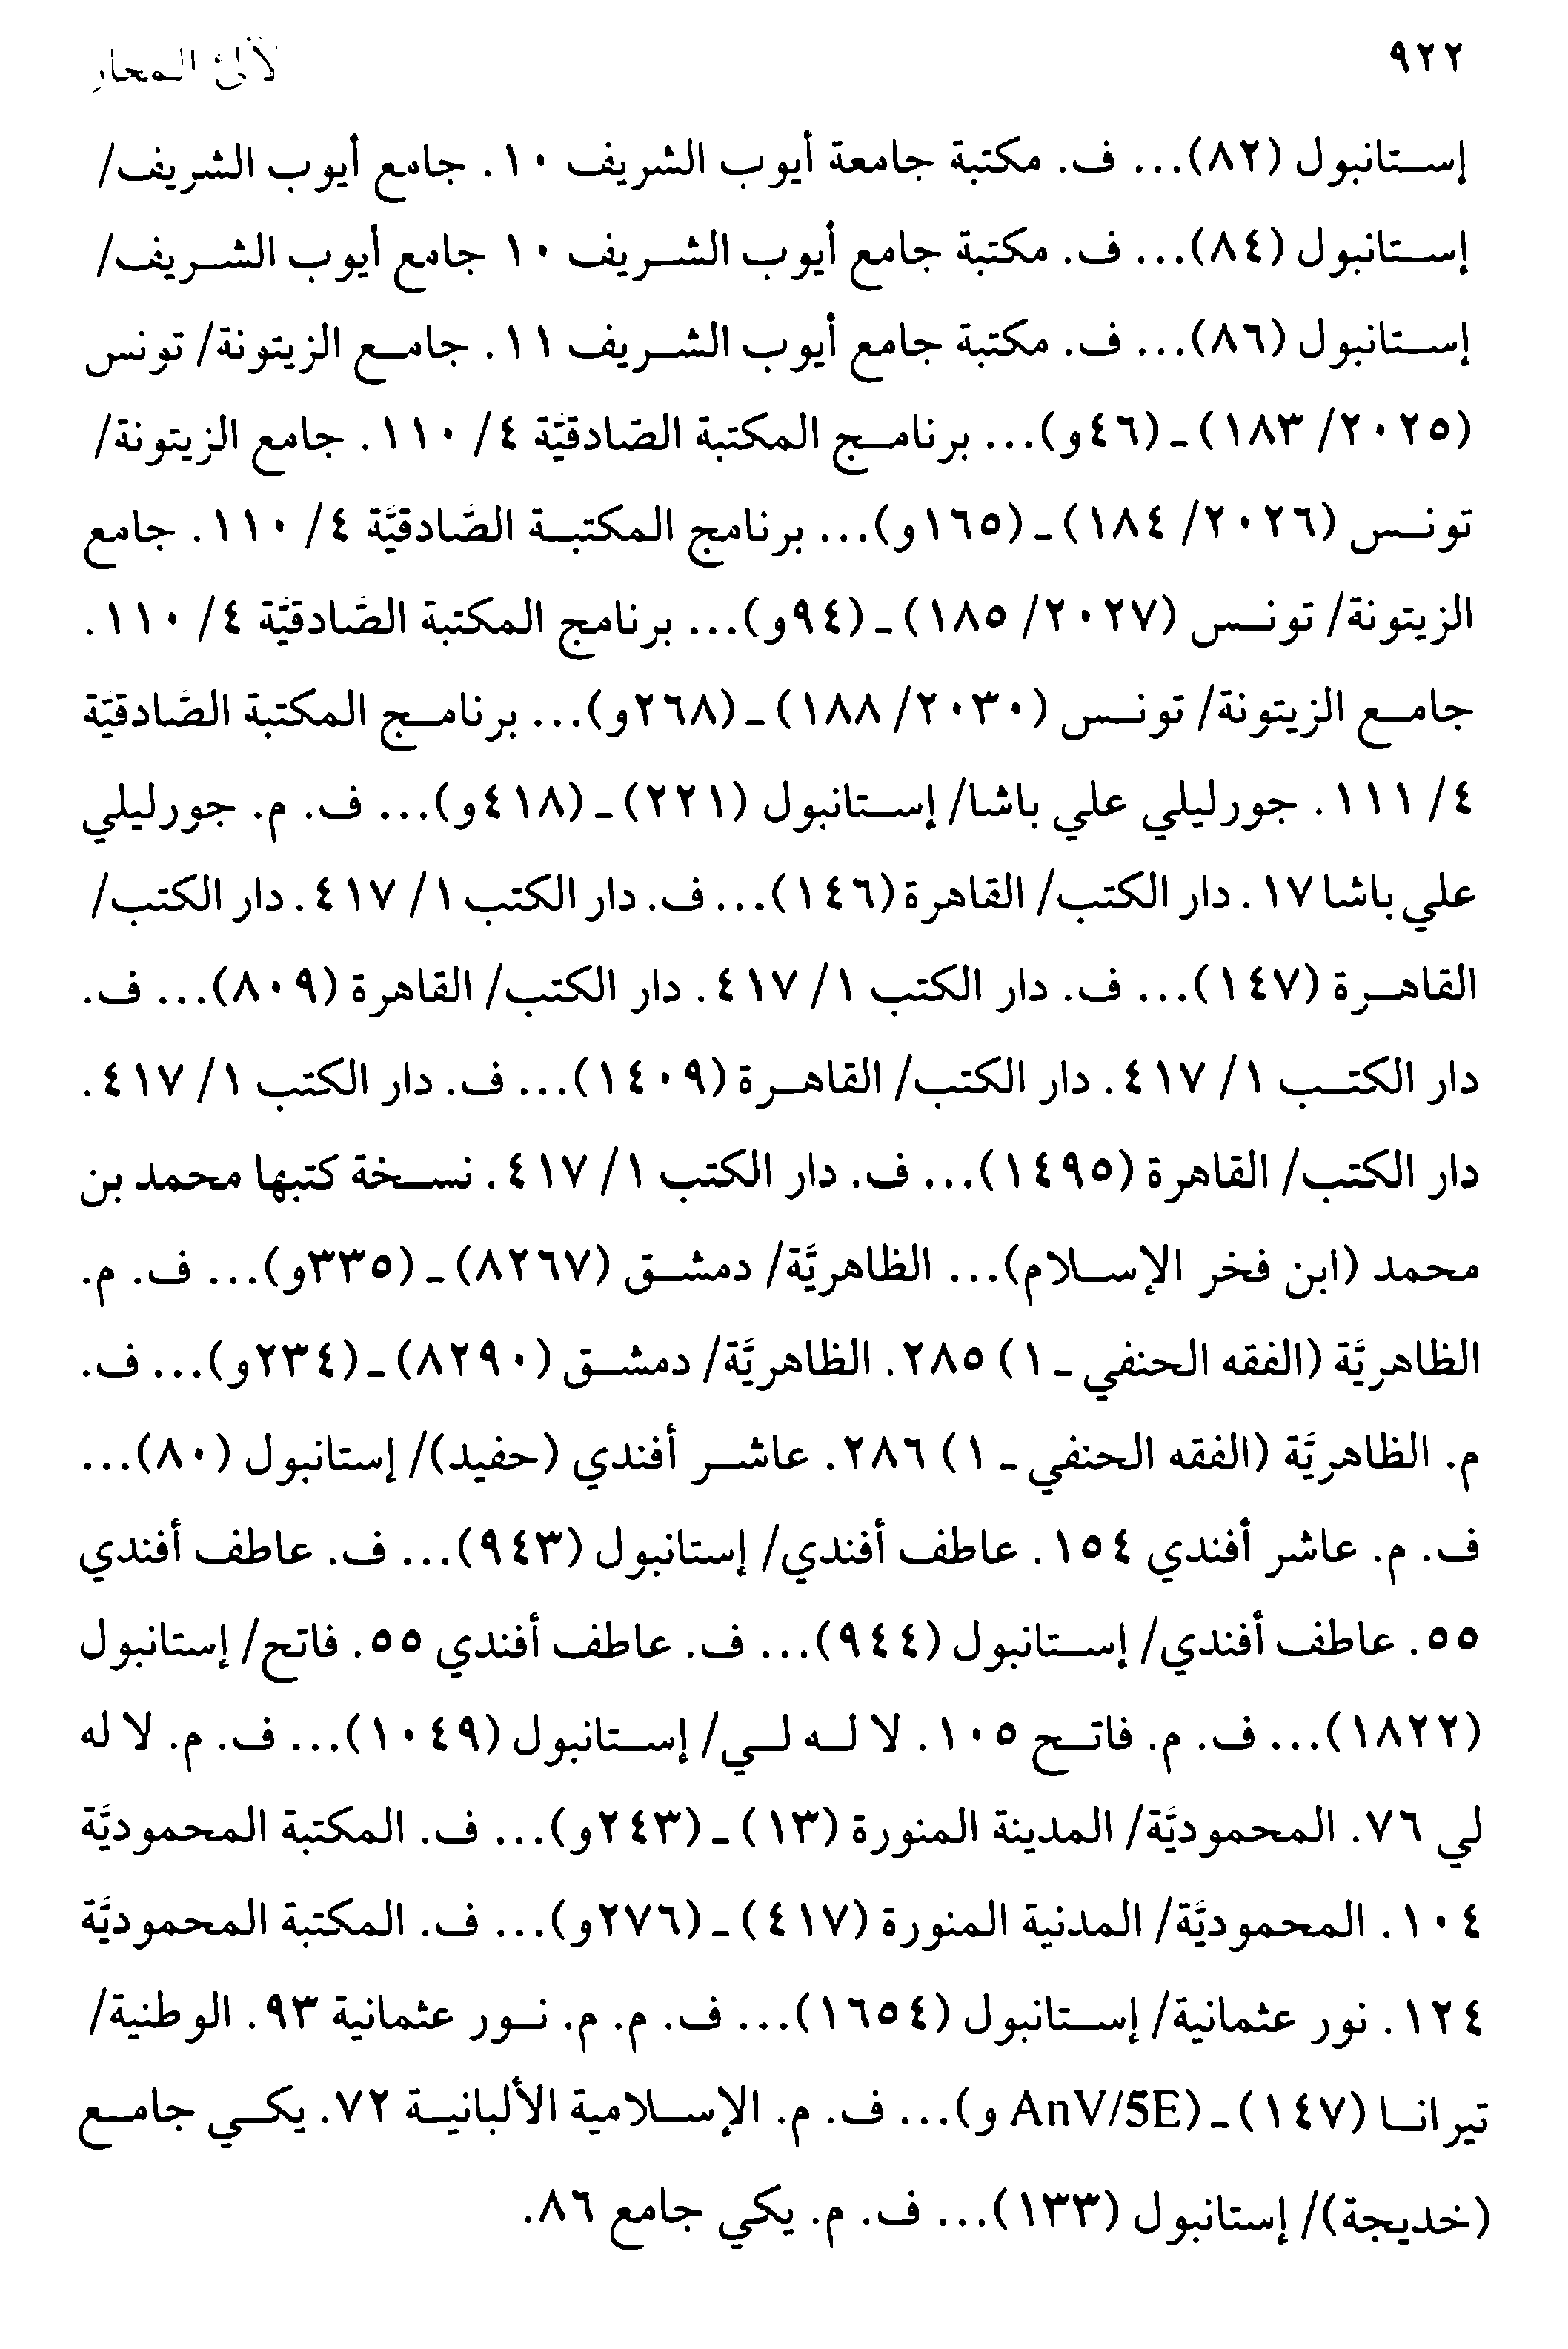 ٩٢٢
لآلئ المحار
إستانبول (٨٢)... ف. مكتبة جامعة أيوب الشريف ١٠. جامع أيوب الشريف/
إستانبول (٨٤)... ف. مكتبة جامع أيوب الشريف ١٠ جامع أيوب الشريف/
إستانبول (٨٦)... ف. مكتبة جامع أيوب الشريف ١١. جامع الزيتونة/ تونس
(٢٠٢٥/ ١٨٣) - (٤٦و)... برنامج المكتبة الصَّادقيَّة ٤/ ١١٠. جامع الزيتونة/
تونس (٢٠٢٦/ ١٨٤) - (١٦٥و)... برنامج المكتبة الصَّادقيَّة ٤/ ١١٠. جامع
الزيتونة/ تونس (٢٠٢٧/ ١٨٥) - (٩٤و)... برنامج المكتبة الصَّادقيَّة ٤/ ١١٠.
جامع الزيتونة/ تونس (٢٠٣٠/ ١٨٨) - (٢٦٨و)... برنامج المكتبة الصَّادقيَّة
٤/ ١١١. جورليلي علي باشا/ إستانبول (٢٢١) - (٤١٨و)... ف. م. جورليلي
علي باشا ١٧. دار الكتب/ القاهرة (١٤٦)... ف. دار الكتب ١/ ٤١٧. دار الكتب/
القاهرة (١٤٧)... ف. دار الكتب ١/ ٤١٧. دار الكتب/ القاهرة (٨٠٩)... ف.
دار الكتب ١/ ٤١٧. دار الكتب/ القاهرة (١٤٠٩)... ف. دار الكتب ١/ ٤١٧.
دار الكتب/ القاهرة (١٤٩٥)... ف. دار الكتب ١/ ٤١٧. نسخة كتبها محمد بن
محمد (ابن فخر الإسلام)... الظاهريَّة/ دمشق (٨٢٦٧) - (٣٣٥و)... ف. م.
الظاهريَّة (الفقه الحنفي - ١) ٢٨٥. الظاهريَّة/ دمشق (٨٢٩٠) - (٢٣٤و)... ف.
م. الظاهريَّة (الفقه الحنفي - ١) ٢٨٦. عاشر أفندي (حفيد)/ إستانبول (٨٠)...
ف. م. عاشر أفندي ١٥٤. عاطف أفندي/ إستانبول (٩٤٣)... ف. عاطف أفندي
٥٥. عاطف أفندي/ إستانبول (٩٤٤)... ف. عاطف أفندي ٥٥. فاتح/ إستانبول
(١٨٢٢)... ف. م. فاتح ١٠٥. لا له لي/ إستانبول (١٠٤٩)... ف. م. لا له
لي ٧٦. المحموديَّة/ المدينة المنورة (١٣) - (٢٤٣و)... ف. المكتبة المحموديَّة
١٠٤. المحموديَّة/ المدنية المنورة (٤١٧) - (٢٧٦و)... ف. المكتبة المحموديَّة
١٢٤. نور عثمانية/ إستانبول (١٦٥٤)... ف. م. م. نور عثمانية ٩٣. الوطنية/
تيرانا (١٤٧) - (AnV/5E و)... ف. م. الإسلامية الألبانية ٧٢. يكي جامع
(خديجة)/ إستانبول (١٣٣)... ف. م. يكي جامع ٨٦.